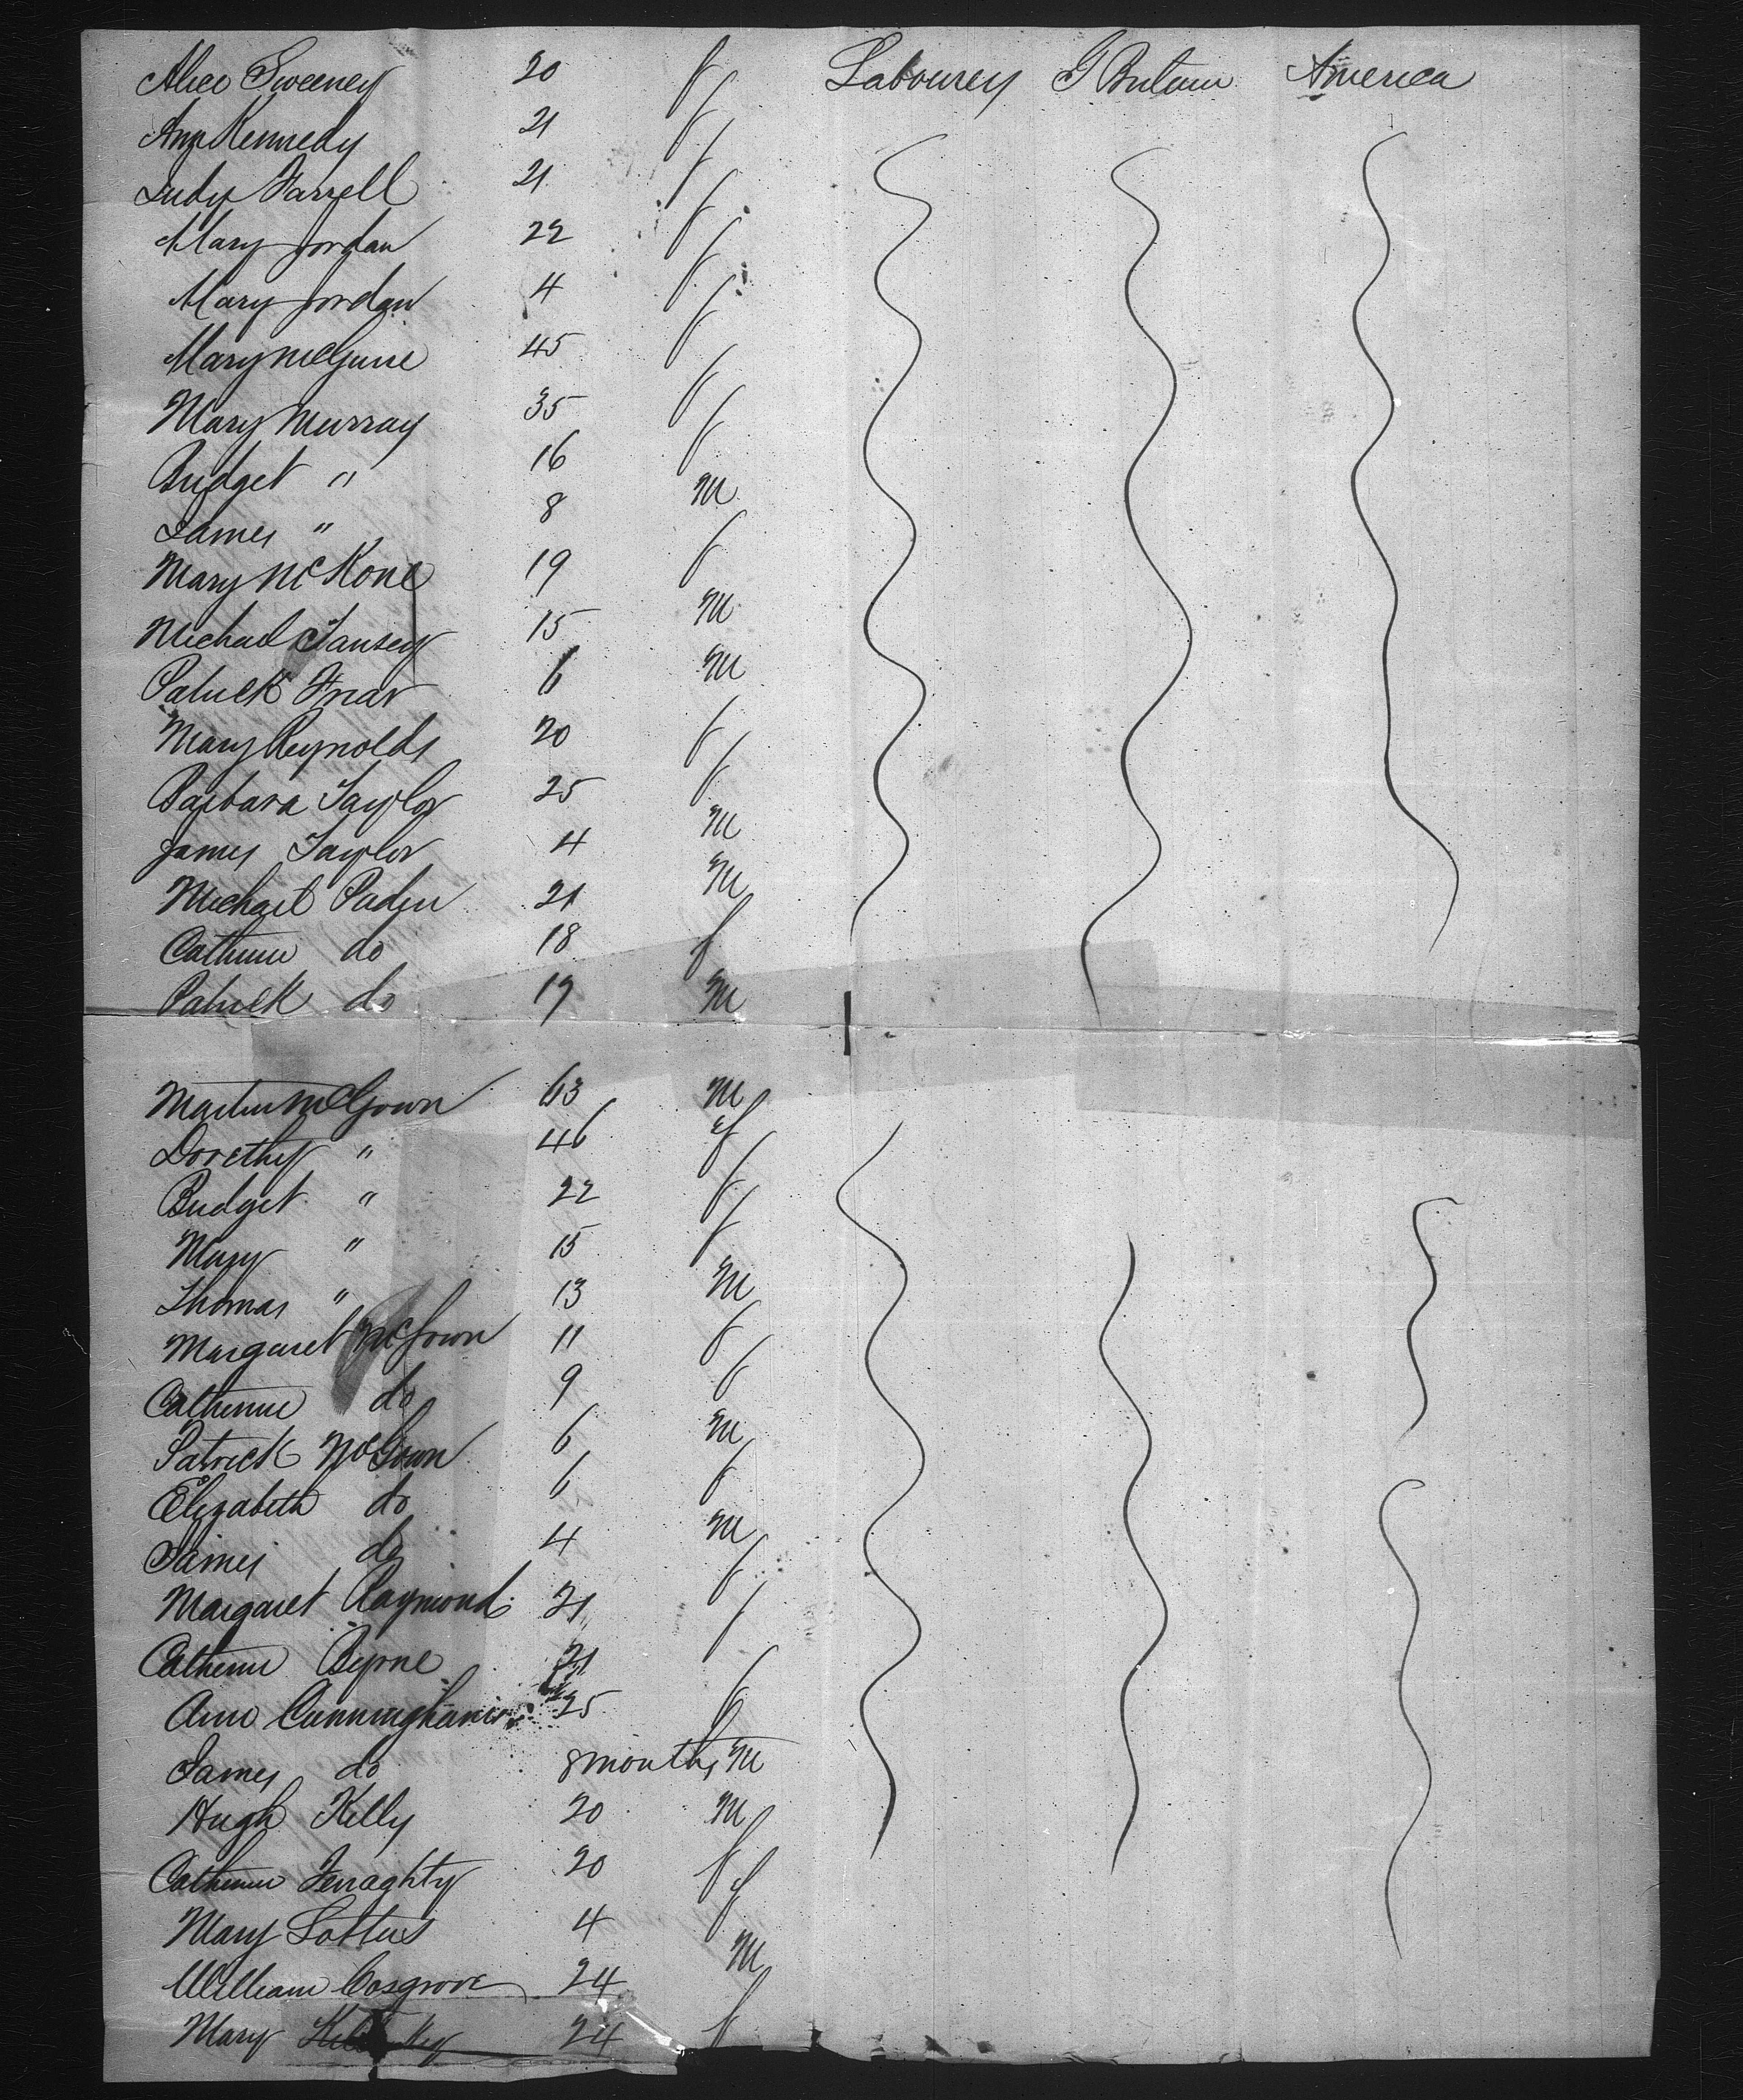 Alice Sweeney 20 f Labourey G Britain America
Ann Kennedy 21 f
Judy Farrell 21 f
Mary Jordan 22 f
Mary Jordan 4 f
Mary McGuire 45 f
Mary Murray 35 f
Bridget " 16 f
James " 8 M
Mary McKone 19 f
Michael Tansey 15 M
Patrick Friar 6 M
Mary Reynolds 20 f
Barbara Taylor 25 f
James Taylor 4 M
Michael Paden 21 M
Catherine do 18 f
Patrick do 19 M
Martin McGown 63 M
Dorethy " 46 f
Bridget " 22 f
Mary " 15 f
Thomas " 13 M
Margaret McGown 11 f
Catherine do 9 f
Patrick McGown 6 M
Elizabeth do 6 f
James do 4 M
Margaret Raymond 21 f
Catherine Byrne 21 f
Ann Cunningham 25 f
James do 8 months M
Hugh Kelly 20 M
Catherine Fenaghty 20 f
Mary Loftus 4 f
William Cosgrove 24 M
Mary 24 f